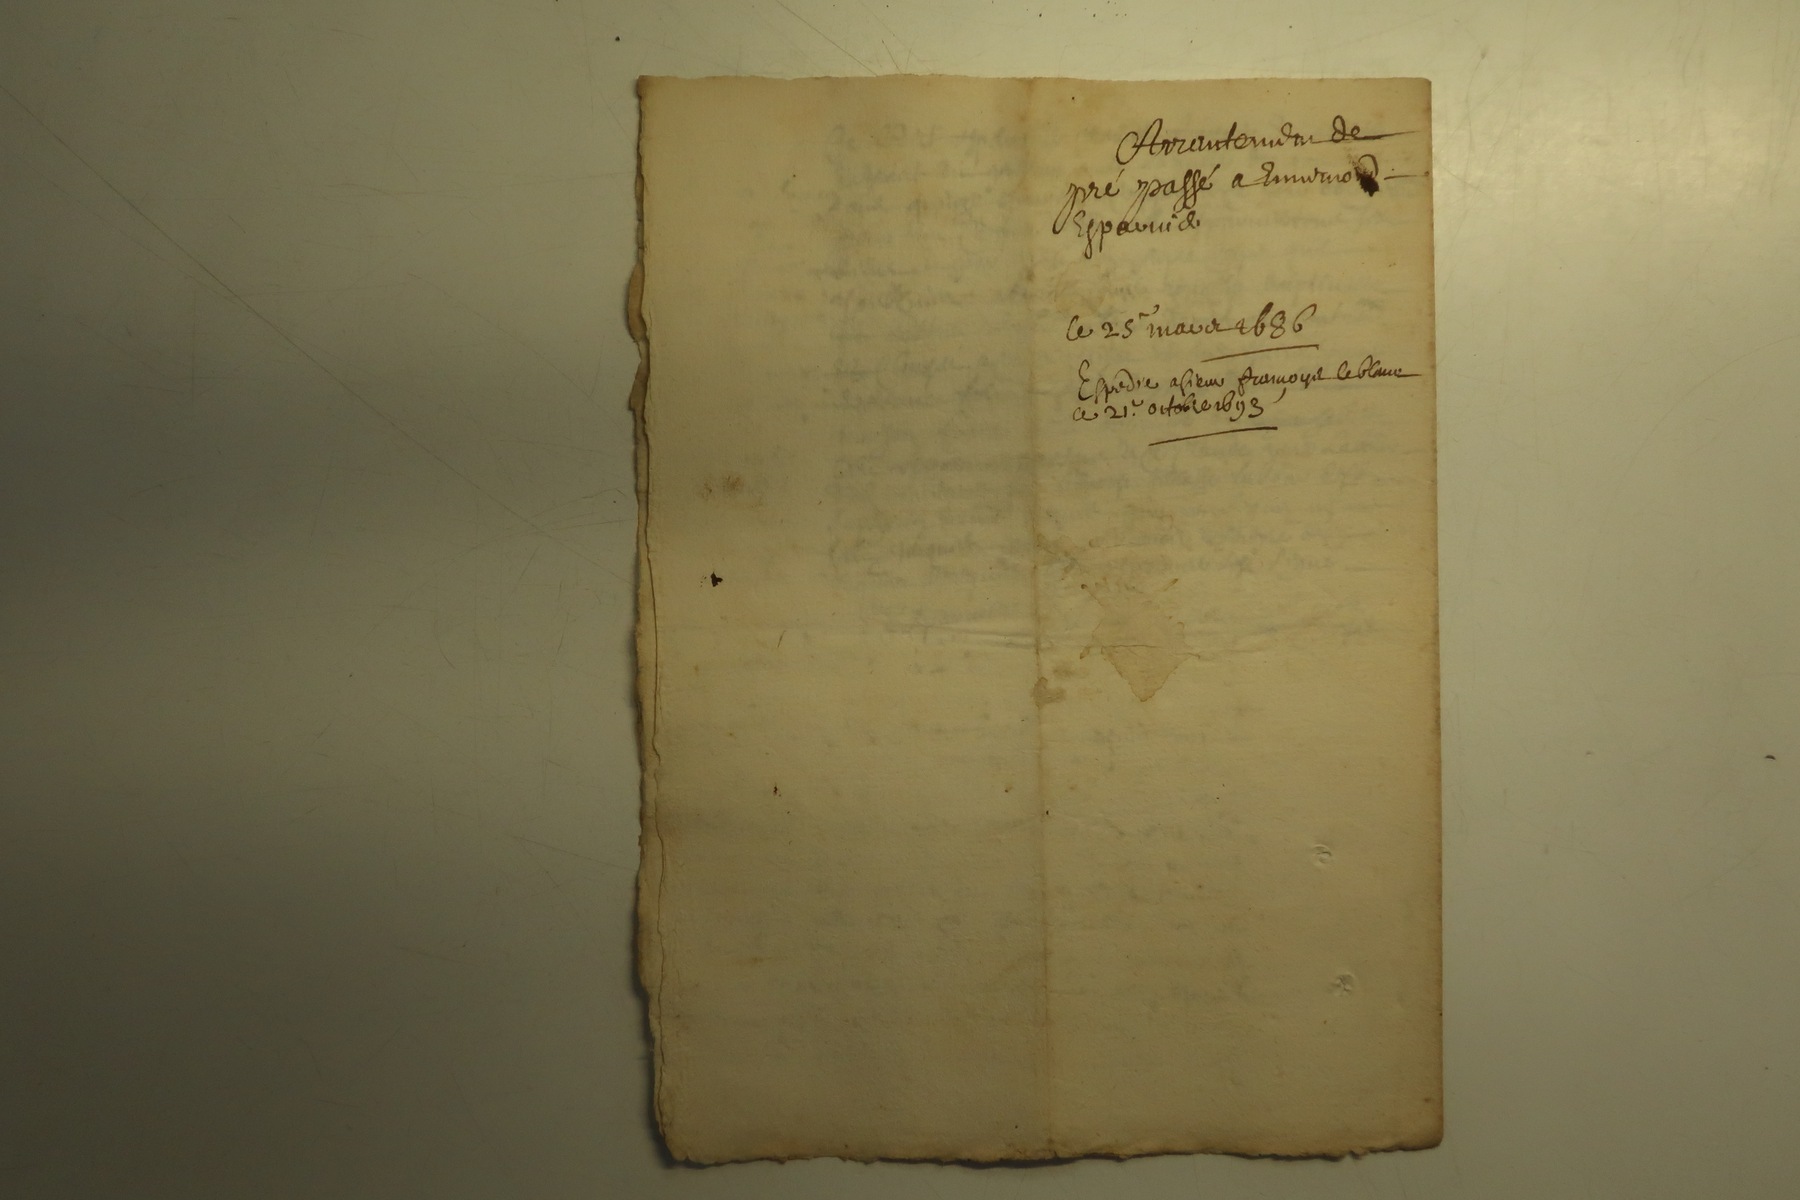 Arrentemen de
pré passé a Ennemond
Espaniel
le 25e mars 1686
Expedie a sieur francoys leblanc
le 21e octobre 1693